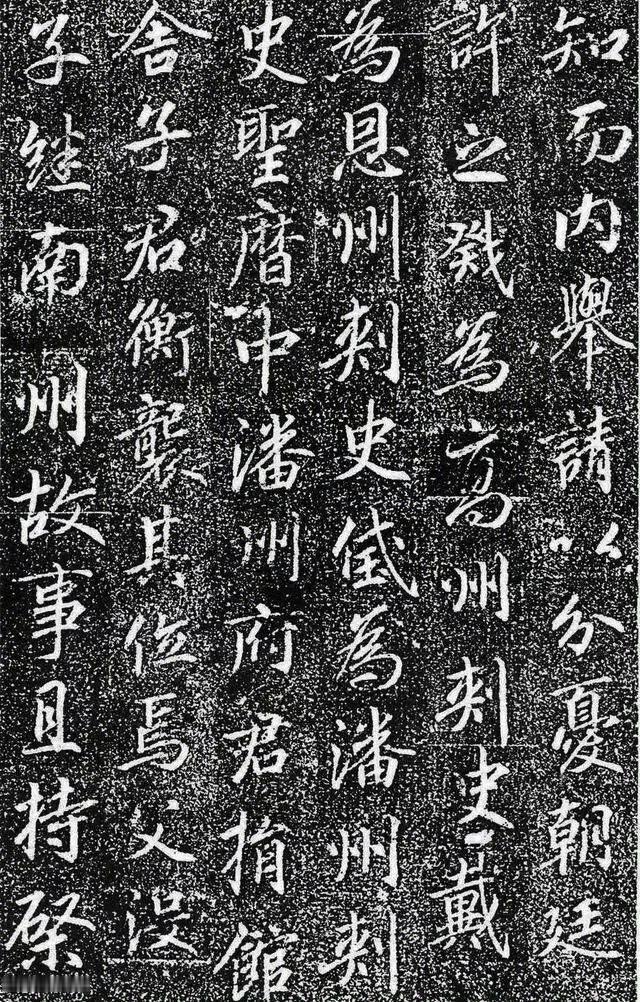 知而内舉請以分憂朝廷
許之戣為高州刺史戴
為恩州刺史玳為潘州刺
史聖曆中潘州府君捐館
舍子君衡襲其位焉父没
子継南州故事且持棨